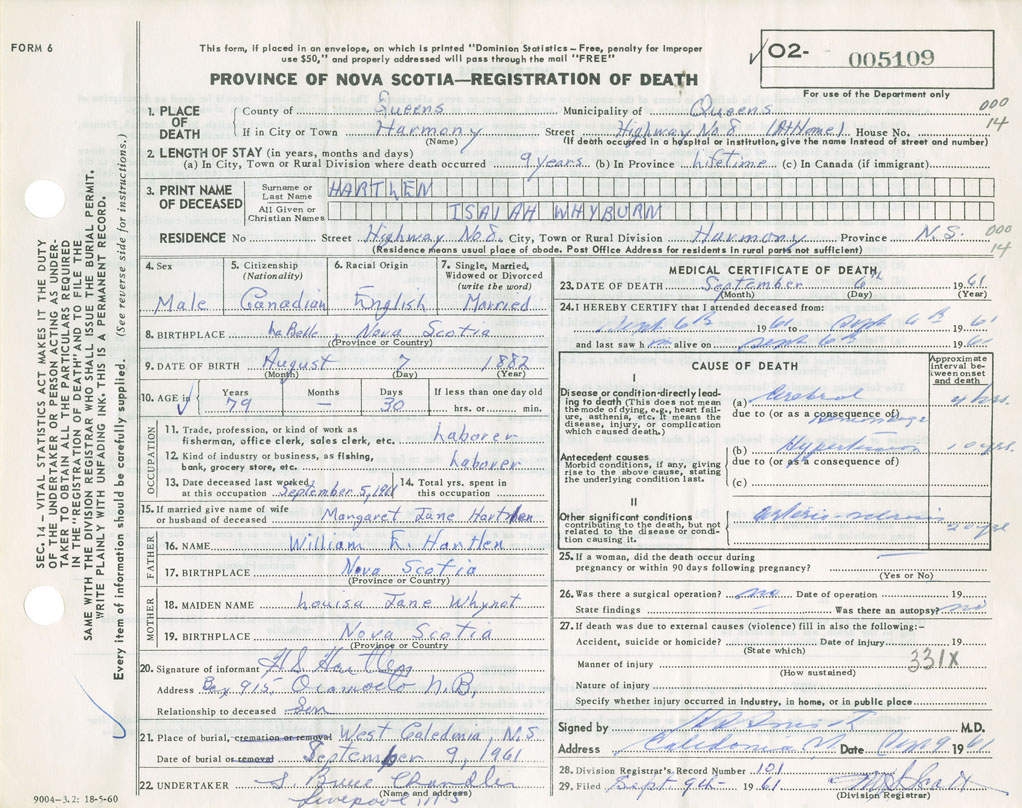 FORM 6
This form, if placed in an envelope, on which is printed "Dominion Statistics – Free, penalty for improper
use $50," and properly addressed will pass through the mail "FREE"
PROVINCE OF NOVA SCOTIA—REGISTRATION OF DEATH
02- 005109
For use of the Department only
1. PLACE OF DEATH
County of Queens Municipality of Queens 000
If in City or Town Harmony Street Highway No 8 (At Home) House No. 14
(Name) (If death occurred in a hospital or institution, give the name instead of street and number)
2. LENGTH OF STAY (in years, months and days)
(a) In City, Town or Rural Division where death occurred 9 years (b) In Province lifetime (c) In Canada (if immigrant)
3. PRINT NAME OF DECEASED
Surname or Last Name HARTLEN
All Given or Christian Names ISAIAH WHYBURN
RESIDENCE No Street Highway No 8. City, Town or Rural Division Harmony Province N.S. 000
(Residence means usual place of abode. Post Office Address for residents in rural parts not sufficient) 14
4. Sex Male
5. Citizenship (Nationality) Canadian
6. Racial Origin English
7. Single, Married, Widowed or Divorced (write the word) Married
8. BIRTHPLACE Nova Scotia
(Province or Country)
9. DATE OF BIRTH August 7 1882
(Month) (Day) (Year)
10. AGE in Years 79 Months – Days 30 If less than one day old hrs. or min.
OCCUPATION
11. Trade, profession, or kind of work as
fisherman, office clerk, sales clerk, etc. Laborer
12. Kind of industry or business, as fishing,
bank, grocery store, etc. Laborer
13. Date deceased last worked
at this occupation September 5, 1961
14. Total yrs. spent in
this occupation
15. If married give name of wife
or husband of deceased Margaret Jane Hartlen
FATHER
16. NAME William E. Hartlen
17. BIRTHPLACE Nova Scotia
(Province or Country)
MOTHER
18. MAIDEN NAME Louisa Jane Whynot
19. BIRTHPLACE Nova Scotia
(Province or Country)
20. Signature of informant H S Hartlen
Address Box 915 Oromocto N.B,
Relationship to deceased Son
21. Place of burial, cremation or removal West Caledonia N.S
Date of burial or removal September 9, 1961
22. UNDERTAKER S. Bruce Chandler
(Name and address)
Liverpool N.S
9004-3.2: 18-5-60
MEDICAL CERTIFICATE OF DEATH
23. DATE OF DEATH September 6th 1961
(Month) (Day) (Year)
24. I HEREBY CERTIFY that I attended deceased from:
Sept 6th 1961 to Sept 6th 1961
and last saw him alive on Sept 6th 1961
CAUSE OF DEATH
Approximate interval between onset and death
I
Disease or condition directly leading to death (This does not mean the mode of dying, e.g., heart failure, asthenia, etc. It means the disease, injury, or complication which caused death.)
(a) Cerebral hrs.
due to (or as a consequence of)
Hemorrhage
Antecedent causes
Morbid conditions, if any, giving rise to the above cause, stating the underlying condition last.
(b) Hypertension 10 yrs.
due to (or as a consequence of)
(c)
II
Other significant conditions
contributing to the death, but not related to the disease or condition causing it.
20 yrs
25. If a woman, did the death occur during
pregnancy or within 90 days following pregnancy?
(Yes or No)
26. Was there a surgical operation? no Date of operation 19
State findings Was there an autopsy? no
27. If death was due to external causes (violence) fill in also the following:–
Accident, suicide or homicide? Date of injury 19
(State which)
Manner of injury 331X
(How sustained)
Nature of injury
Specify whether injury occurred in industry, in home, or in public place
Signed by M.D.
Address Caledonia Date 9 1961
28. Division Registrar's Record Number 101
29. Filed Sept 9th 1961
(Division Registrar)
SEC. 14 – VITAL STATISTICS ACT MAKES IT THE DUTY
OF THE UNDERTAKER OR PERSON ACTING AS UNDER-
TAKER TO OBTAIN ALL THE PARTICULARS REQUIRED
IN THE "REGISTRATION OF DEATH" AND TO FILE THE
SAME WITH THE DIVISION REGISTRAR WHO SHALL ISSUE THE BURIAL PERMIT.
WRITE PLAINLY WITH UNFADING INK. THIS IS A PERMANENT RECORD.
Every item of information should be carefully supplied. (See reverse side for instructions.)